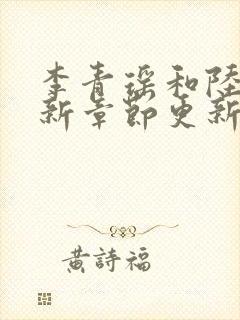 李青瑤和陸
新章節更新
黃詩福